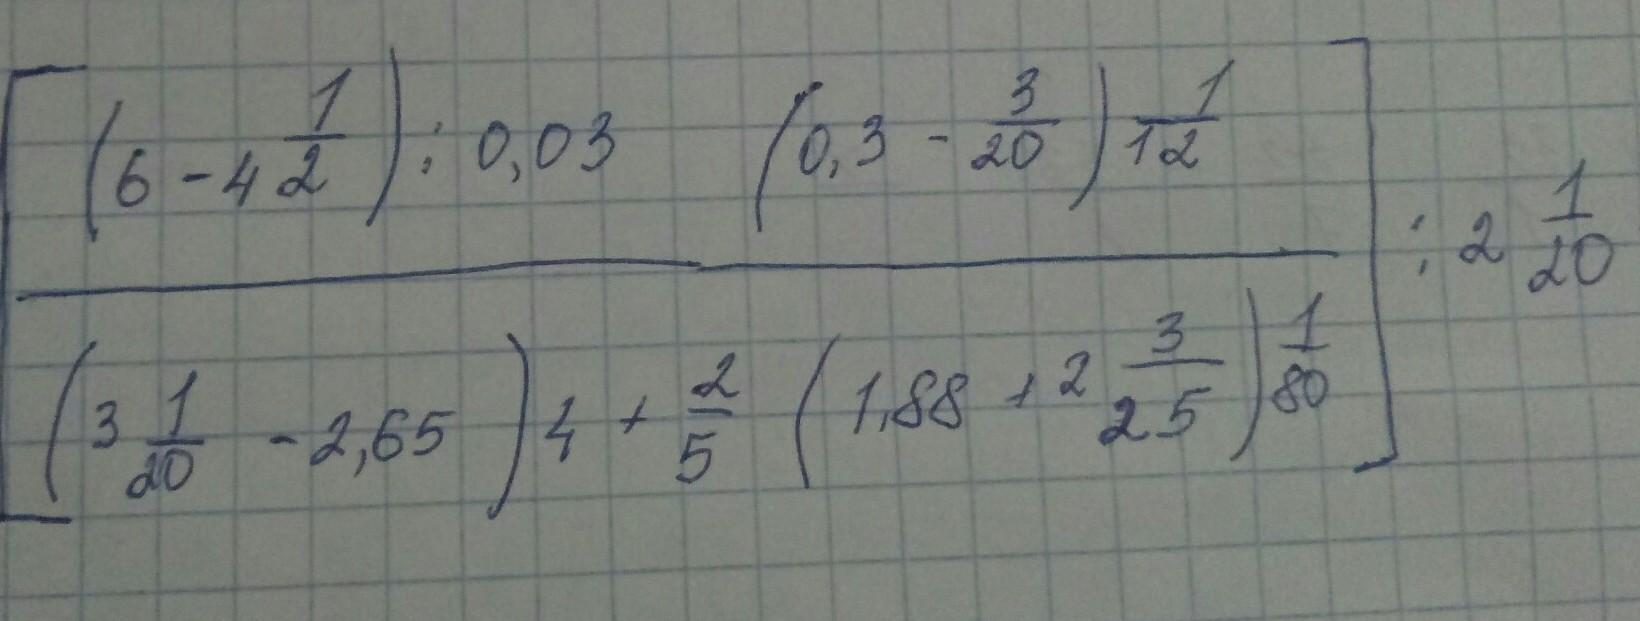 [(6 - 4 1/2) : 0,03 (0,3 - 3/20) 1/12
(3 1/20 - 2,65) 4 + 2/5 (1,88 + 2 3/25) 1/80] : 2 1/20